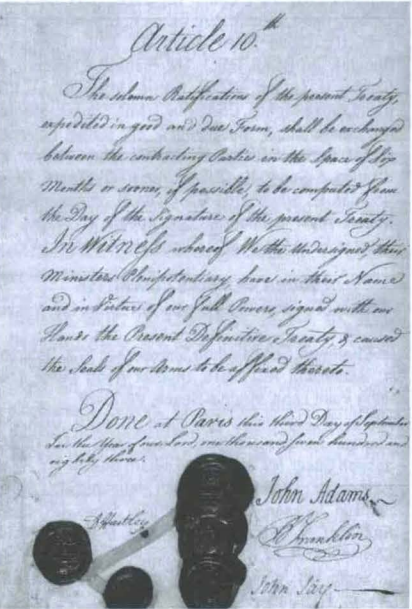 Article 10.th
The solemn Ratifications of the present Treaty,
expedited in good and due Form, shall be exchanged
between the contracting Parties in the Space of Six
Months or sooner, if possible, to be computed from
the Day of the Signature of the present Treaty.
In Witness whereof We the Undersigned, their
Ministers Plenipotentiary have in their Name
and in Virtue of our Full Powers, signed with our
Hands the Present Definitive Treaty, & caused
the Seals of our Arms to be affixed thereto.
Done at Paris this third Day of September
In the Year of our Lord, one thousand Seven hundred and
eighty three.
John Adams
D Hartley
B Franklin
John Jay